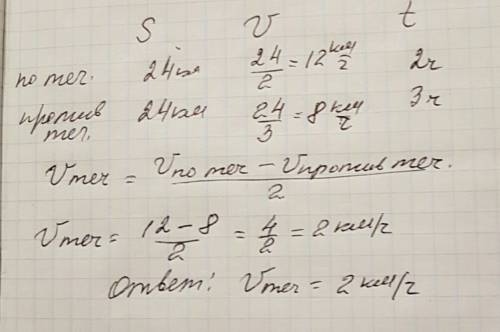 S V t
по теч. 24 км 24/2 = 12 км/ч 2ч
против теч. 24 км 24/3 = 8 км/ч 3ч
Vтеч = (Vпо теч − Vпротив теч.)/2
Vтеч = (12 − 8)/2 = 4/2 = 2 км/ч
Ответ: Vтеч = 2 км/ч